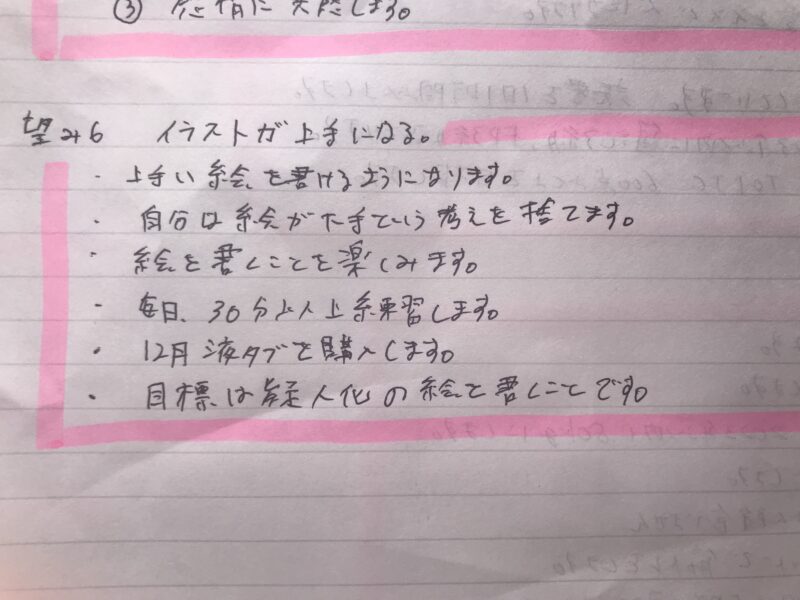 ③ 感情に します。
望み6 イラストが上手になる。
・上手い絵を書けるようになります。
・自分は絵が下手という考えを捨てます。
・絵を書くことを楽しみます。
・毎日、30分以上練習します。
・12月液タブを購入します。
・目標は疑人化の絵を書くことです。